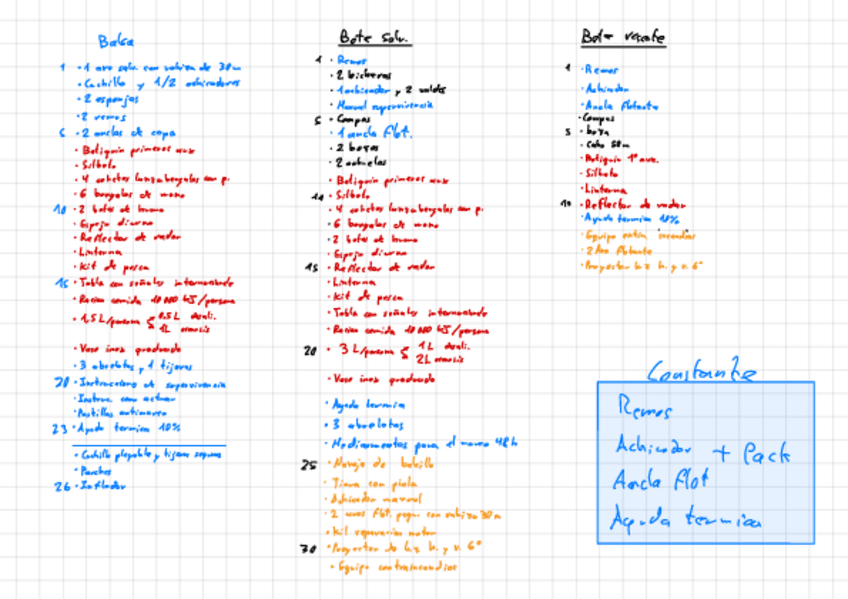 Balsa
1 · 1 aro salv. con rabiza de 30m
· Cuchillo y 1/2 achicadores
· 2 esponjas
· 2 remos
5 · 2 anclas de capa
· Botiquin primeros aux
· Silbato
· 4 cohetes lanzabengalas con p.
· 6 bengalas de mano
10 · 2 botes de humo
· Espejo diurno
· Reflector de radar
· Linterna
· Kit de pesca
15 · Tabla con señales
· Racion comida 10 000 kJ/persona
· 1,5 L/persona { 0,5L desali.
1L osmosis
· Vaso inox graduado
· 3 abrelatas y 1 tijeras
20 · Instrucciones de supervivencia
· Instruc. como actuar
· Pastillas antimareo
23 · Ayuda termica 10%
· Cuchillo plegable y tijeras
· Parches
26 · Inflador
Bote salv.
1 · Remos
· 2 bicheros
· 1 achicador y 2 baldes
· Manual supervivencia
5 · Compas
· 1 ancla flot.
· 2 bozas
· 2 achuelas
· Botiquin primeros aux
10 · Silbato
· 4 cohetes lanzabengalas con p.
· 6 bengalas de mano
· 2 botes de humo
· Espejo diurno
15 · Reflector de radar
· Linterna
· Kit de pesca
· Tabla con señales
· Racion comida 10 000 kJ/persona
20 · 3 L/persona { 1L desali.
2L osmosis
· Vaso inox graduado
· Ayuda termica
· 3 abrelatas
· Medicamentos para el mareo 48h
25 · Navaja de bolsillo
· con piola
· Achicador manual
· 2 aros flot. pequ. con rabiza 30m
· Kit reparacion motor
30 · Proyector de luz h. y v. 6°
· Equipo contraincendios
Bote rescate
1 · Remos
· Achicador
· Ancla flotante
· Compas
5 · boza
· Cabo 50m
· Botiquin 1º aux.
· Silbato
· Linterna
10 · Reflector de radar
· Ayuda termica 10%
· Equipo extin incendios
· 2 Aro flotante
· Proyector luz h. y v. 6°
Constante
Remos
Achicador + Pack
Ancla flot
Ayuda termica